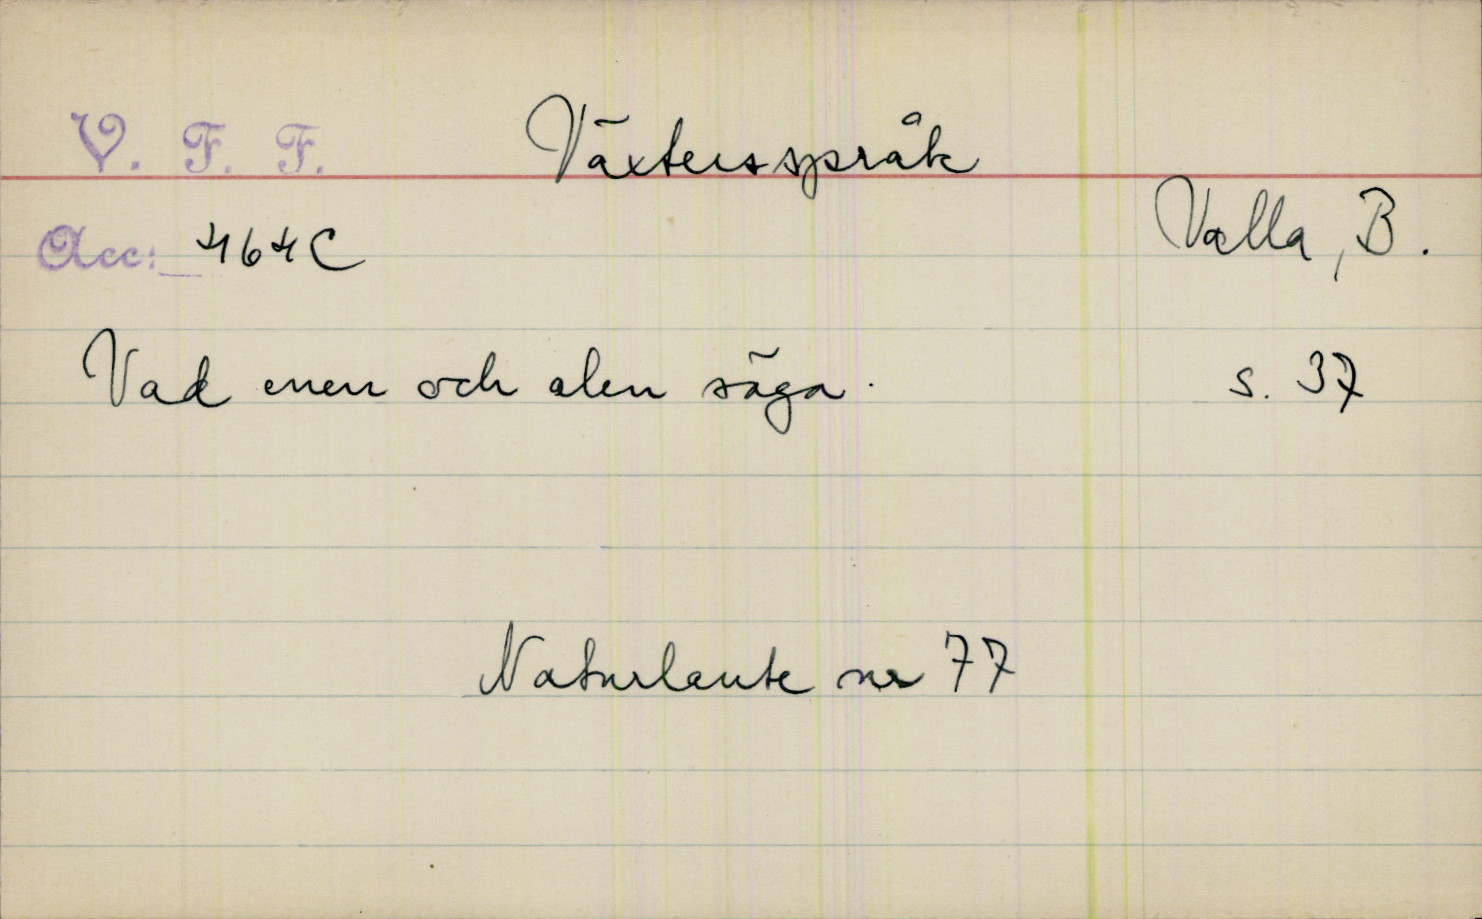 V. F. F.
Växtersspråk
Acc: 464C
Valla, B.
Vad enen och alen säga.
s. 37
Naturlaute nr 77